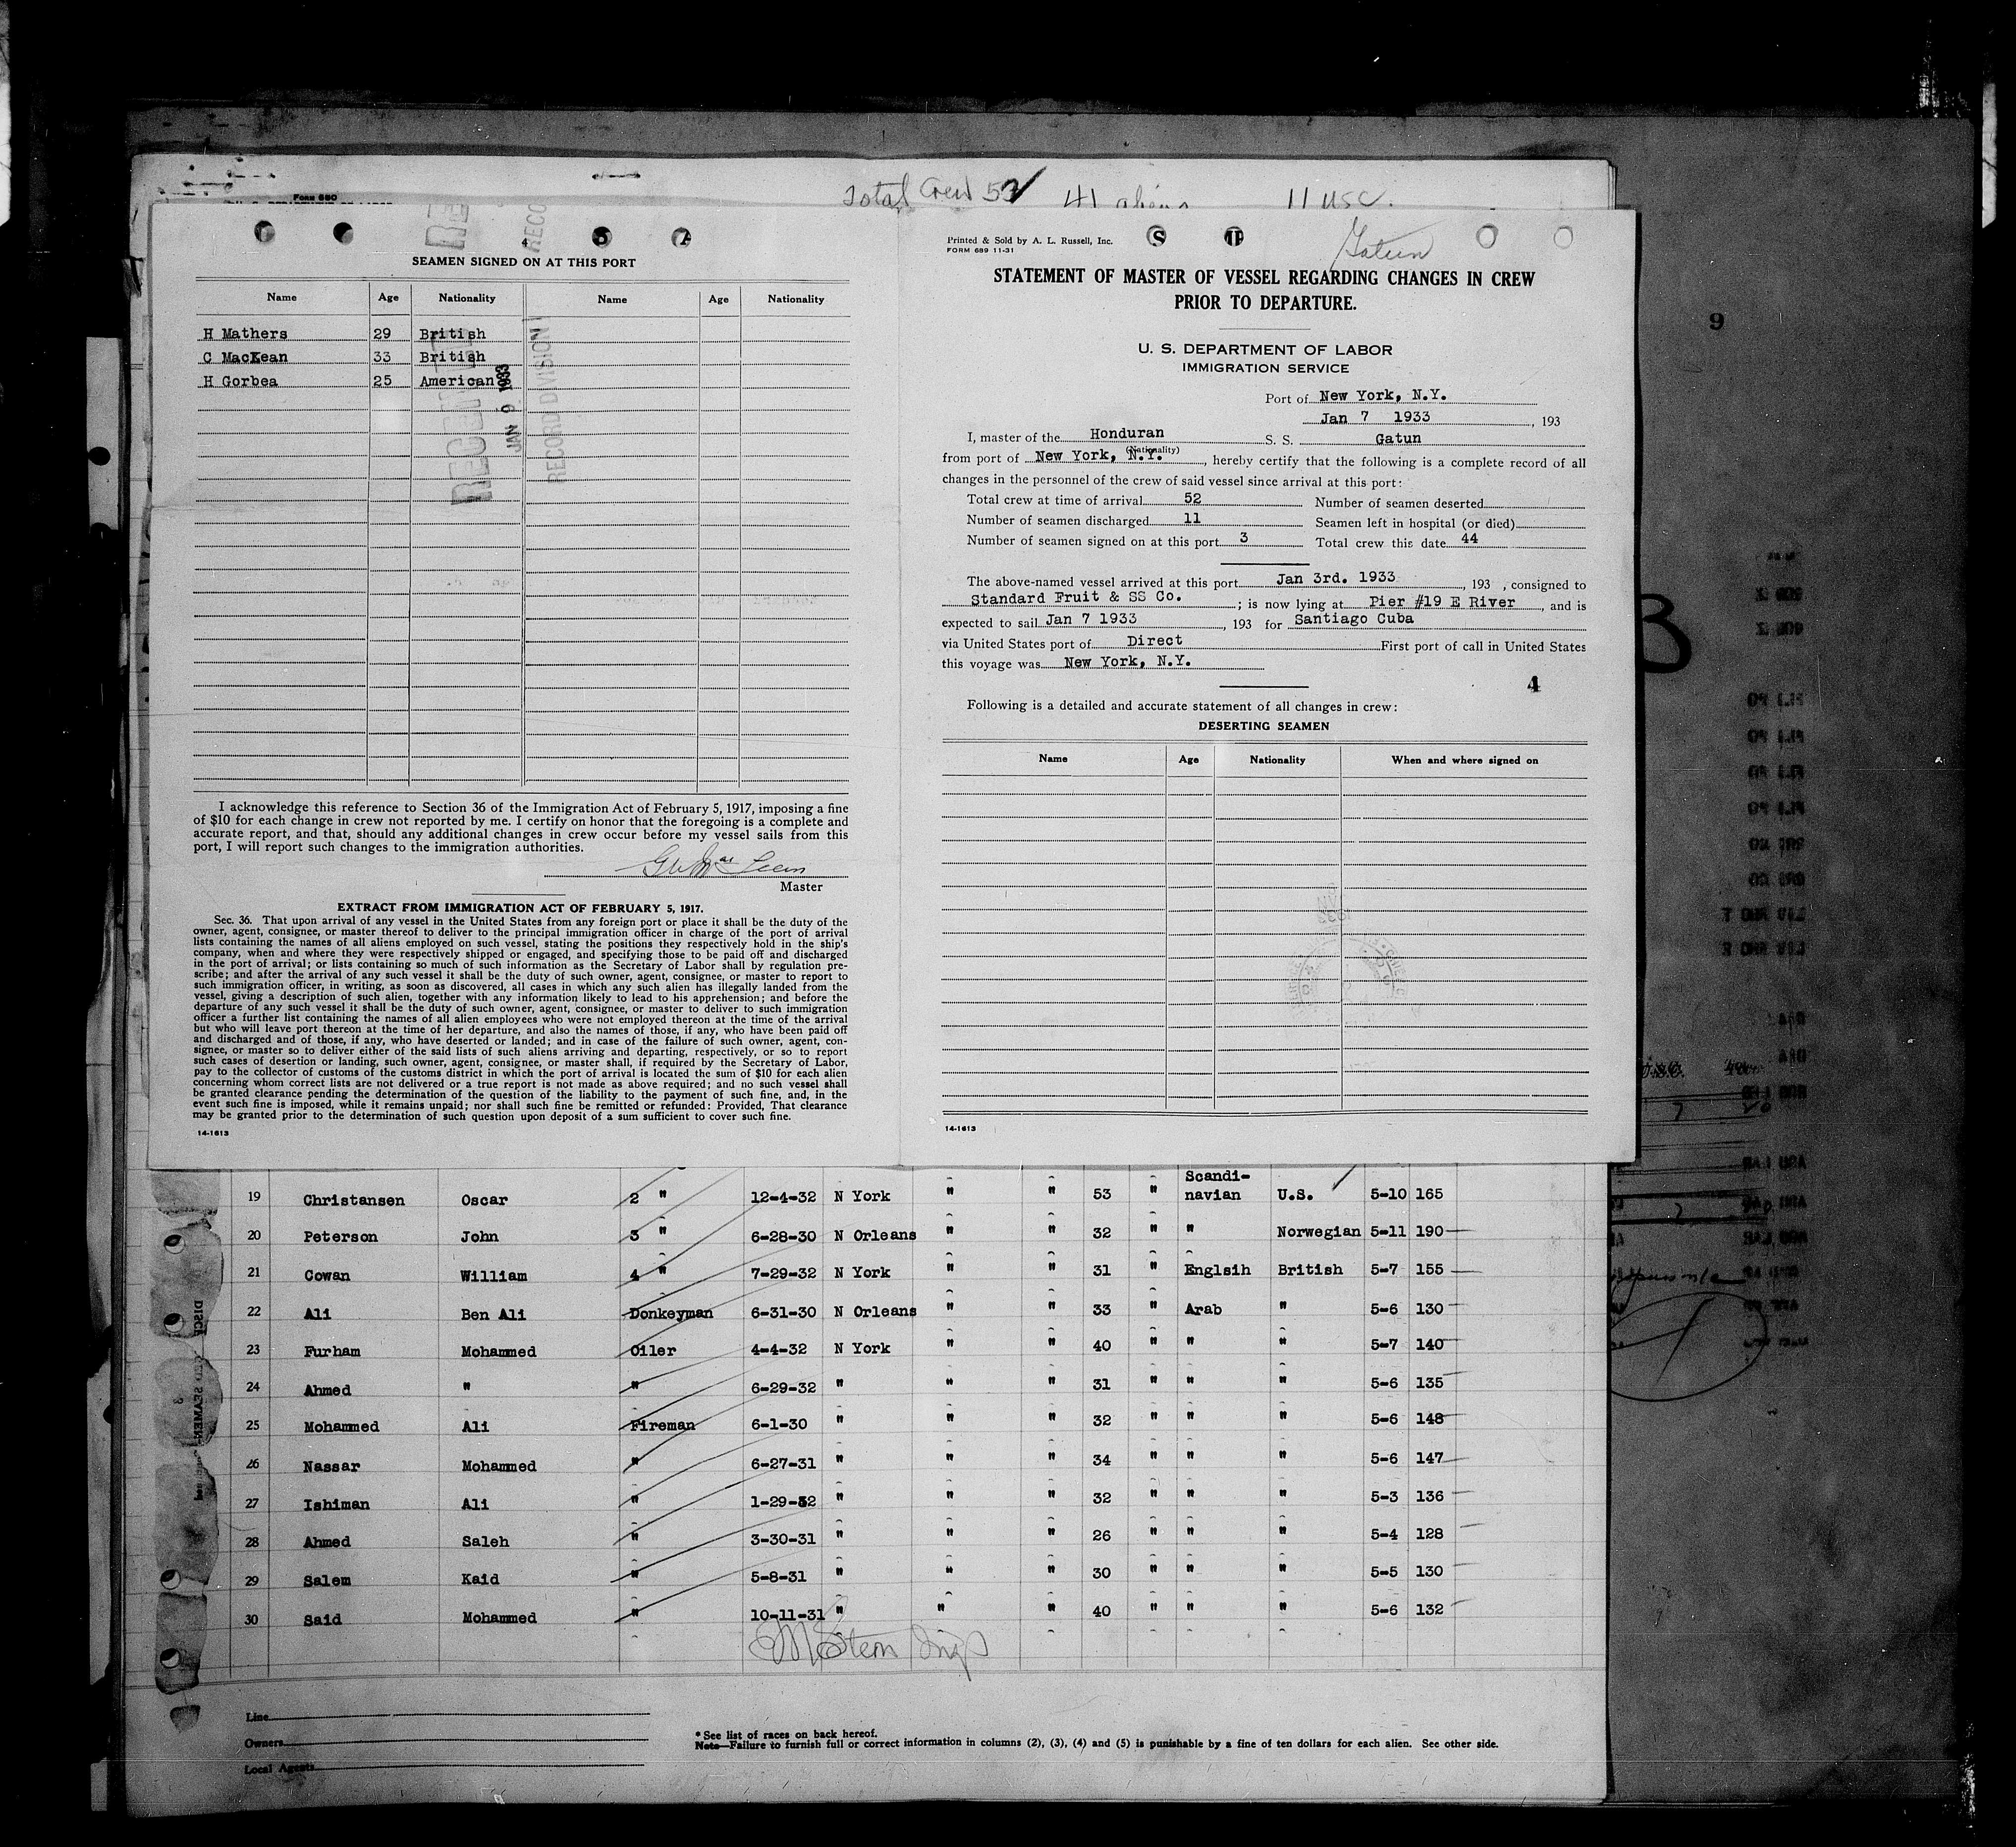 Total Crew 52 41 aliens 11 USC.
Form 680
4
SEAMEN SIGNED ON AT THIS PORT
Name Age Nationality Name Age Nationality
H Mathers 29 British
C MacKean 33 British
H Gorbea 25 American
RECEIVED
JAN 9 1933
RECORD DIVISION
I acknowledge this reference to Section 36 of the Immigration Act of February 5, 1917, imposing a fine
of $10 for each change in crew not reported by me. I certify on honor that the foregoing is a complete and
accurate report, and that, should any additional changes in crew occur before my vessel sails from this
port, I will report such changes to the immigration authorities.
Master
EXTRACT FROM IMMIGRATION ACT OF FEBRUARY 5, 1917.
Sec. 36. That upon arrival of any vessel in the United States from any foreign port or place it shall be the duty of the
owner, agent, consignee, or master thereof to deliver to the principal immigration officer in charge of the port of arrival
lists containing the names of all aliens employed on such vessel, stating the positions they respectively hold in the ship's
company, when and where they were respectively shipped or engaged, and specifying those to be paid off and discharged
in the port of arrival; or lists containing so much of such information as the Secretary of Labor shall by regulation pre-
scribe; and after the arrival of any such vessel it shall be the duty of such owner, agent, consignee, or master to report to
such immigration officer, in writing, as soon as discovered, all cases in which any such alien has illegally landed from the
vessel, giving a description of such alien, together with any information likely to lead to his apprehension; and before the
departure of any such vessel it shall be the duty of such owner, agent, consignee, or master to deliver to such immigration
officer a further list containing the names of all alien employees who were not employed thereon at the time of the arrival
but who will leave port thereon at the time of her departure, and also the names of those, if any, who have been paid off
and discharged and of those, if any, who have deserted or landed; and in case of the failure of such owner, agent, con-
signee, or master so to deliver either of the said lists of such aliens arriving and departing, respectively, or so to report
such cases of desertion or landing, such owner, agent, consignee, or master shall, if required by the Secretary of Labor,
pay to the collector of customs of the customs district in which the port of arrival is located the sum of $10 for each alien
concerning whom correct lists are not delivered or a true report is not made as above required; and no such vessel shall
be granted clearance pending the determination of the question of the liability to the payment of such fine, and, in the
event such fine is imposed, while it remains unpaid; nor shall such fine be remitted or refunded: Provided, That clearance
may be granted prior to the determination of such question upon deposit of a sum sufficient to cover such fine.
14-1613
Printed & Sold by A. L. Russell, Inc.
FORM 689 11-31
Gatun
STATEMENT OF MASTER OF VESSEL REGARDING CHANGES IN CREW
PRIOR TO DEPARTURE.
U. S. DEPARTMENT OF LABOR
IMMIGRATION SERVICE
Port of New York, N.Y.
Jan 7 1933, 193
I, master of the Honduran S. S. Gatun
(Nationality)
from port of New York, N.Y., hereby certify that the following is a complete record of all
changes in the personnel of the crew of said vessel since arrival at this port:
Total crew at time of arrival 52 Number of seamen deserted
Number of seamen discharged 11 Seamen left in hospital (or died)
Number of seamen signed on at this port 3 Total crew this date 44
The above-named vessel arrived at this port Jan 3rd. 1933, 193 , consigned to
Standard Fruit & SS Co. ; is now lying at Pier #19 E River, and is
expected to sail Jan 7 1933, 193 for Santiago Cuba
via United States port of Direct First port of call in United States
this voyage was New York, N.Y.
4
Following is a detailed and accurate statement of all changes in crew:
DESERTING SEAMEN
Name Age Nationality When and where signed on
14-1613
9
3
19 Christansen Oscar 2 " 12-4-32 N York " " 53 " Scandi-navian U.S. 5-10 165
20 Peterson John 3 " 6-28-30 N Orleans " " 32 " " Norwegian 5-11 190
21 Cowan William 4 " 7-29-32 N York " " 31 " Englsih British 5-7 155
22 Ali Ben Ali Donkeyman 6-31-30 N Orleans " " 33 " Arab " 5-6 130
23 Furham Mohammed Oiler 4-4-32 N York " " 40 " " " 5-7 140
24 Ahmed " " 6-29-32 " " " 31 " " " 5-6 135
25 Mohammed Ali Fireman 6-1-30 " " " 32 " " " 5-6 148
26 Nassar Mohammed " 6-27-31 " " " 34 " " " 5-6 147
27 Ishiman Ali " 1-29-32 " " " 32 " " " 5-3 136
28 Ahmed Saleh " 3-30-31 " " " 26 " " " 5-4 128
29 Salem Kaid " 5-8-31 " " " 30 " " " 5-5 130
30 Said Mohammed " 10-11-31 " " " 40 " " " 5-6 132
Line
Owners
Local Agents
* See list of races on back hereof.
Note—Failure to furnish full or correct information in columns (2), (3), (4) and (5) is punishable by a fine of ten dollars for each alien. See other side.